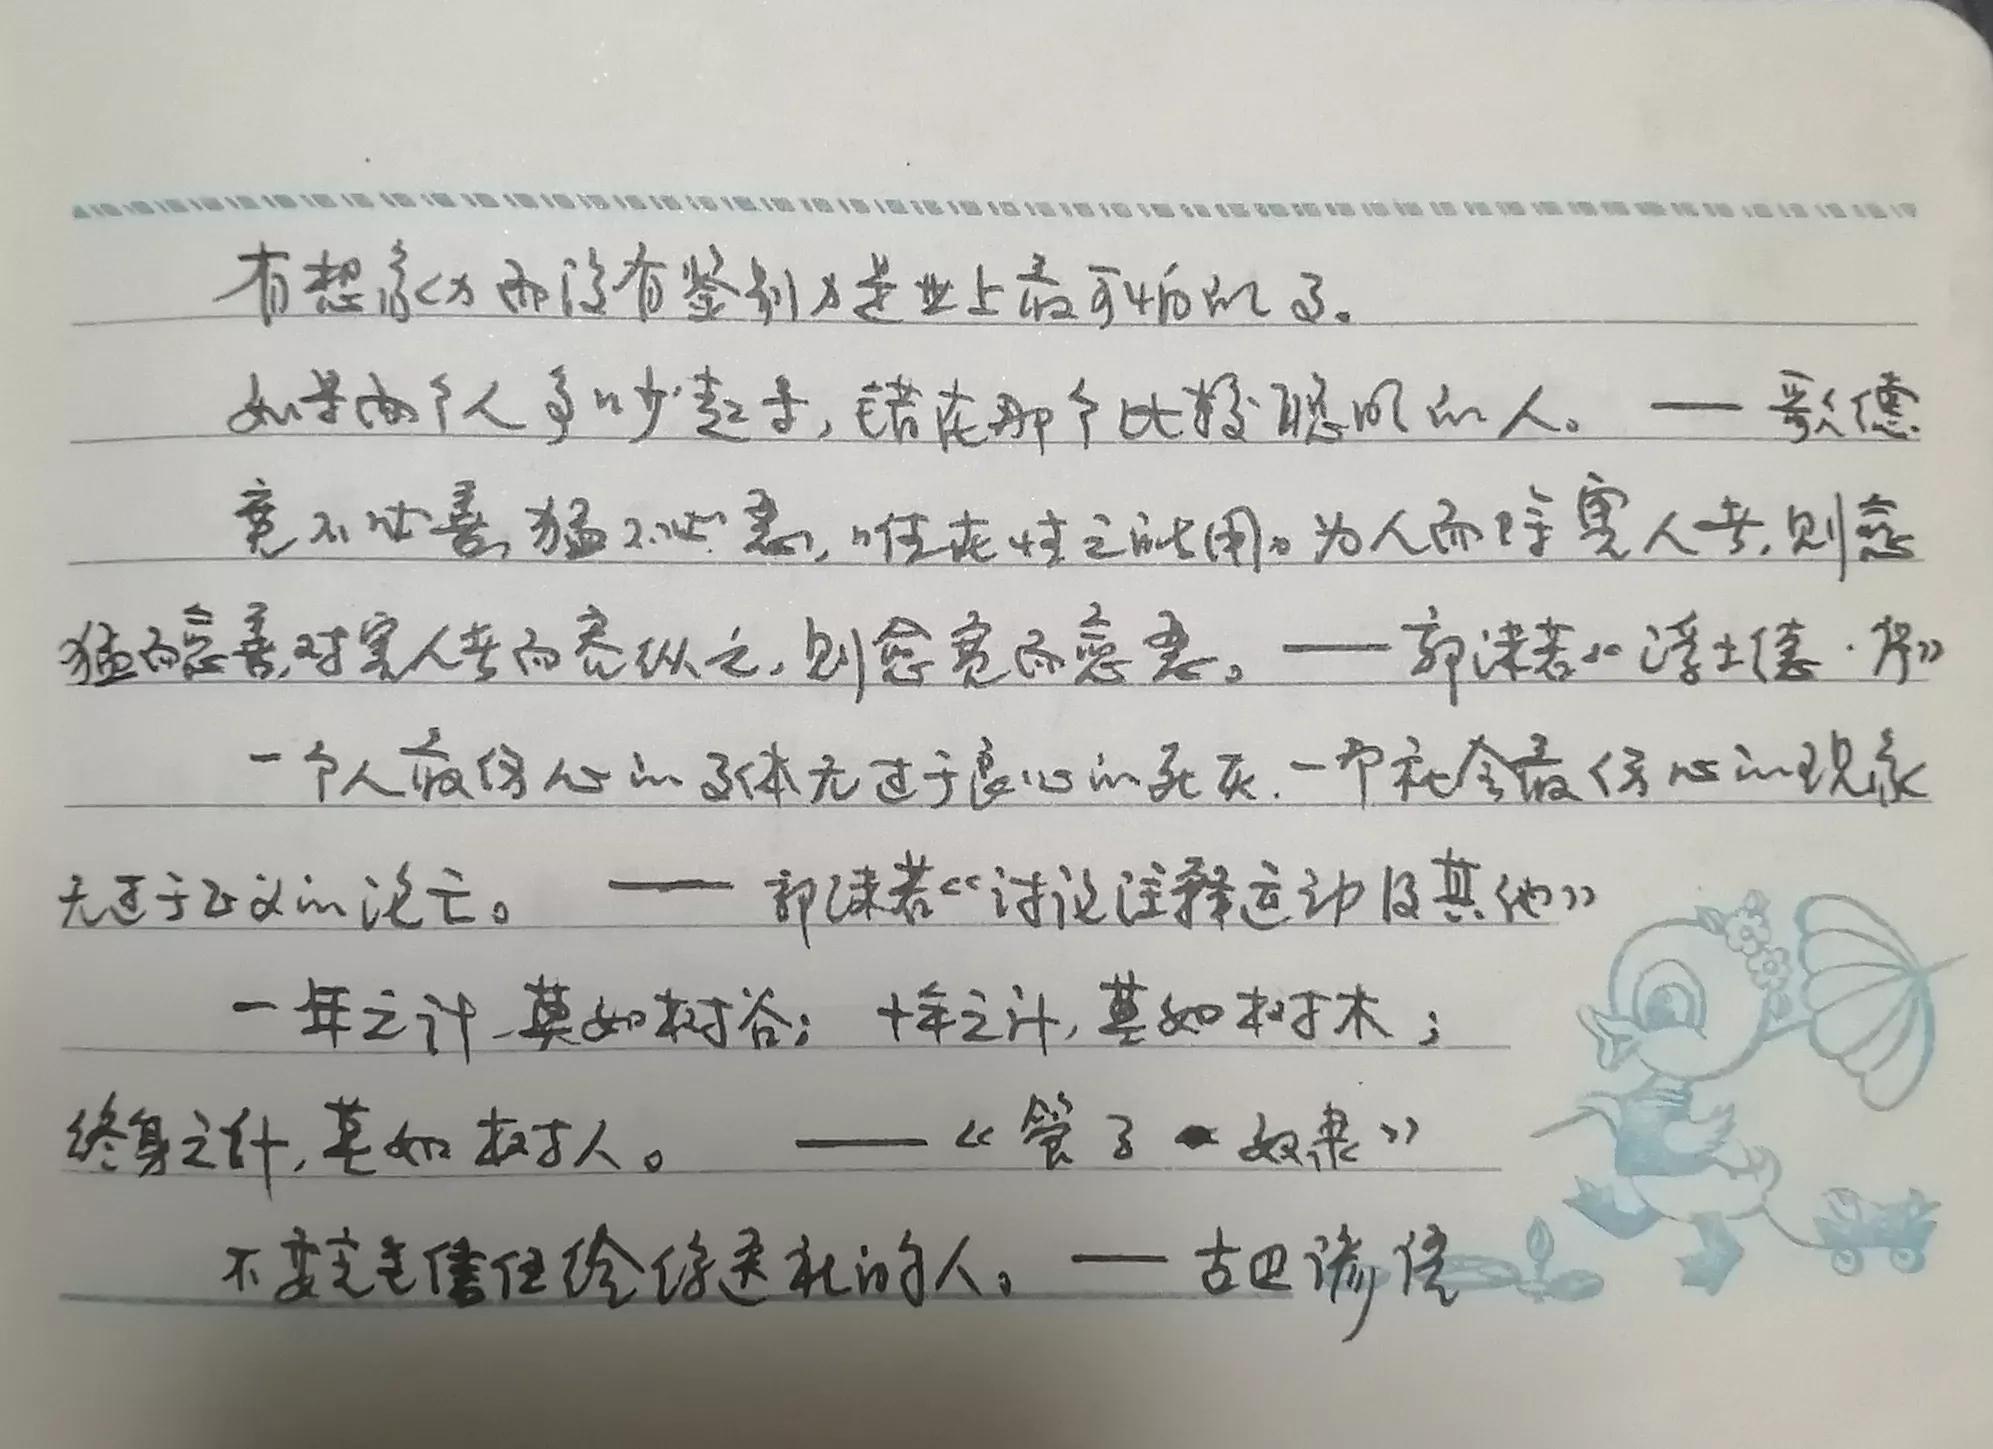 有想象力而没有鉴别力是世上最可怕的了。
如果两个人争吵起来，错在那个比较聪明的人。——歌德
宽不必善，猛不必恶，唯在性之所用。为人而除害人者，则愈
猛而愈善，对害人者而宽纵之，则愈宽而愈恶。——郭沫若《浮士德·序》
一个人最伤心的事体无过于良心的死灭，一个社会最伤心的现象
无过于正义的沦亡。——郭沫若《讨论注释运动及其他》
一年之计，莫如树谷；十年之计，莫如树木；
终身之计，莫如树人。——《管子
不要完全信任给你送礼的人。——古巴谚语